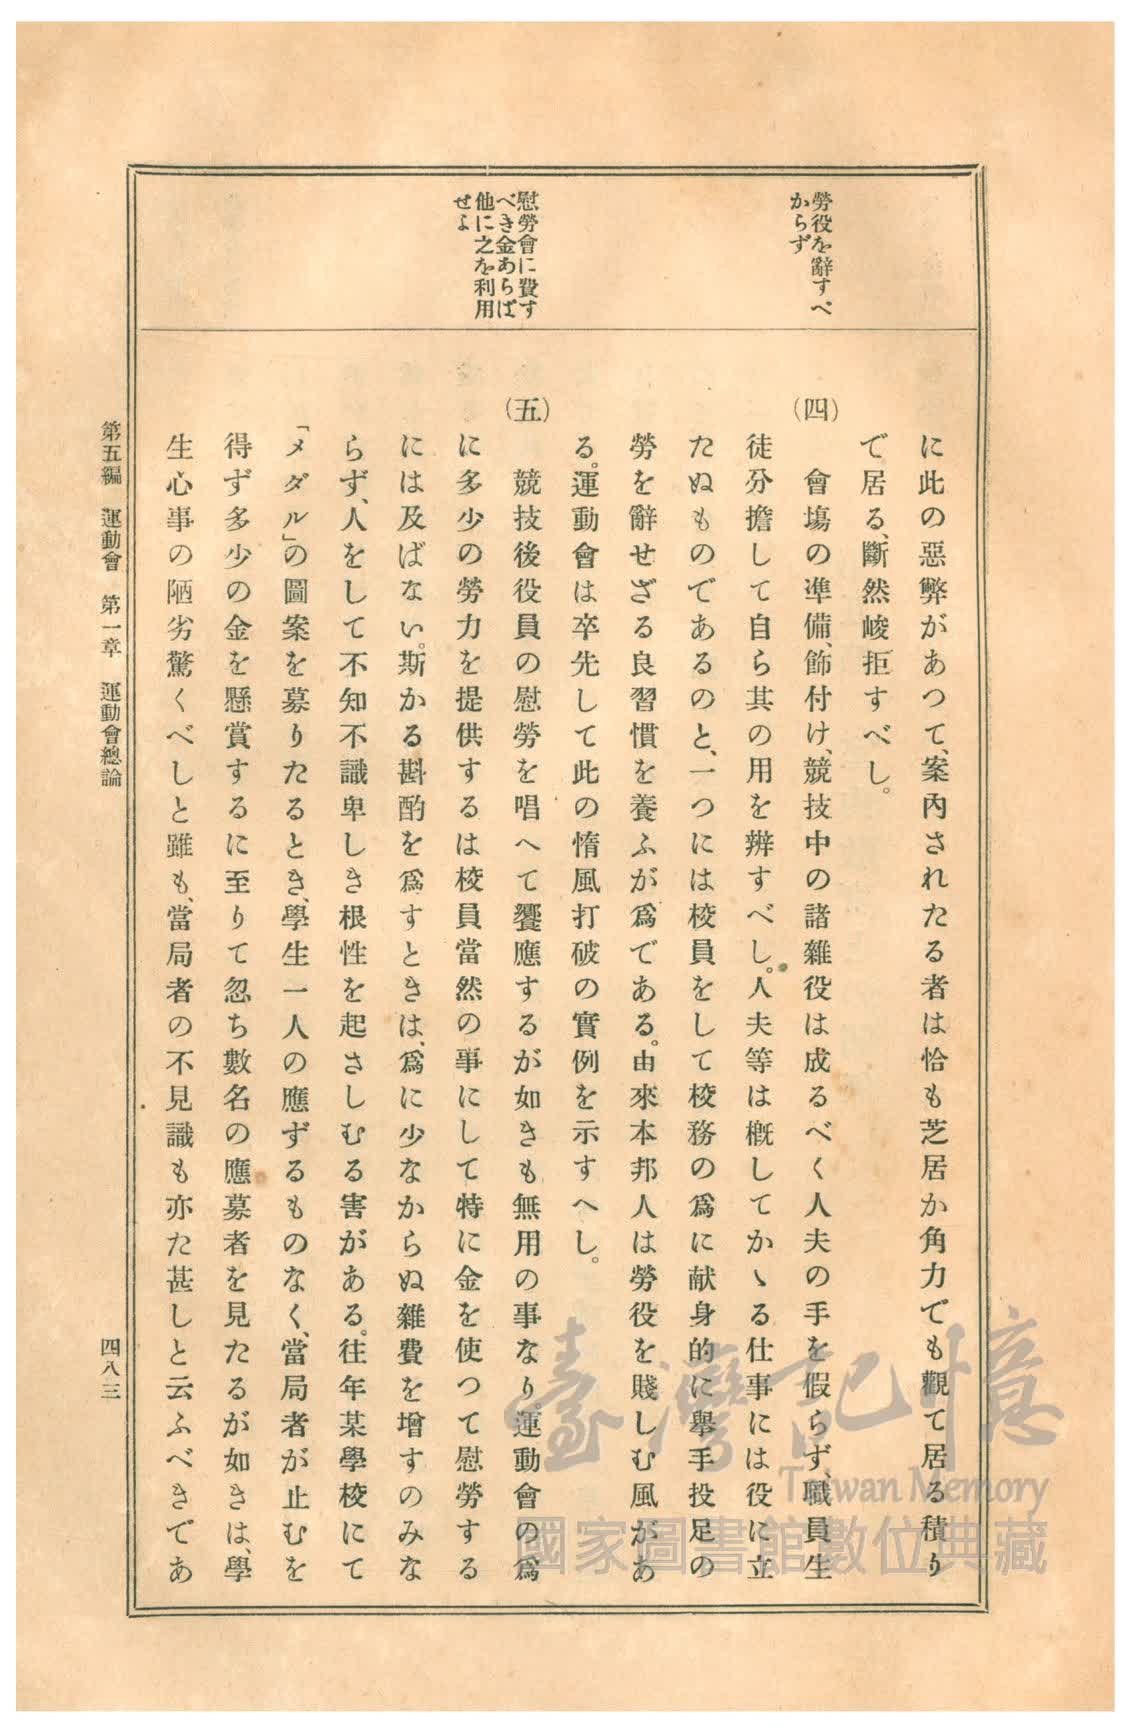 勞役を辭すべ
からず
慰勞會に費す
べき金あらば
他に之を利用
せよ
に此の惡弊があつて、案內されたる者は恰も芝居か角力でも觀て居る積り
で居る、斷然峻拒すべし。
(四)
會塲の準備、飾付け、競技中の諸雜役は成るべく人夫の手を假らず、職員生
徒分擔して自ら其の用を辨すべし。人夫等は概してかゝる仕事には役に立
たぬものであるのと、一つには校員をして校務の爲に献身的に擧手投足の
勞を辭せざる良習慣を養ふが爲である。由來本邦人は勞役を賤しむ風があ
る。運動會は卒先して此の惰風打破の實例を示すへし。
(五)
競技後役員の慰勞を唱へて饗應するが如きも無用の事なり。運動會の爲
に多少の勞力を提供するは校員當然の事にして特に金を使つて慰勞する
には及ばない。斯かる斟酌を爲すときは、爲に少なからぬ雜費を增すのみな
らず、人をして不知不識卑しき根性を起さしむる害がある。往年某學校にて
「メダル」の圖案を募りたるとき、學生一人の應ずるものなく、當局者が止むを
得ず多少の金を懸賞するに至りて忽ち數名の應募者を見たるが如きは、學
生心事の陋劣驚くべしと雖も、當局者の不見識も亦た甚しと云ふべきであ
第五編 運動會 第一章 運動會總論
四八三
臺灣記憶
Taiwan Memory
國家圖書館數位典藏